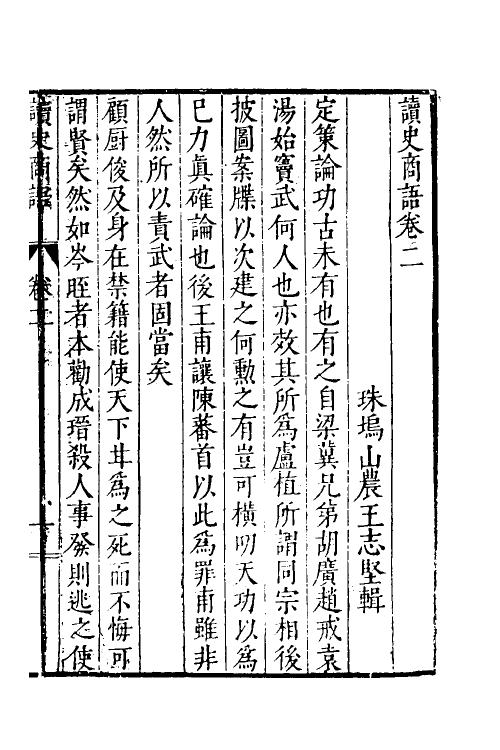 讀史商語卷二
珠塢山農王志堅輯
定策論功古未有也有之自梁冀兄弟胡廣趙戒袁
湯始竇武何人也亦效其所為盧植所謂同宗相後
披圖案牒以次建之何勲之有豈可橫叨天功以為
已力眞確論也後王甫讓陳蕃首以此為罪甫雖非
人然所以責武者固當矣
顧厨俊及身在禁籍能使天下甘為之死而不悔可
謂賢矣然如岑晊者本勸成瑨殺人事發則逃之使
讀史商語
卷二